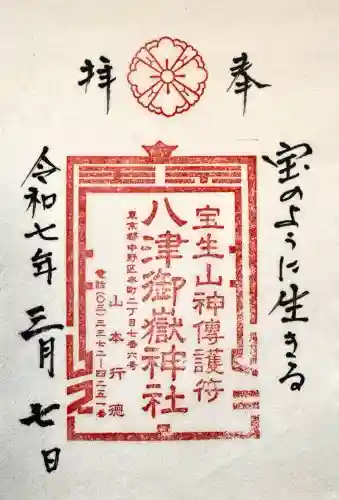 奉拝
宝のように生きる
宝生山神傳護符
八津御嶽神社
東京都中野区本町二丁目七番六号
山本行徳
電話(〇三)三三七二―四二五一番
令和七年三月七日